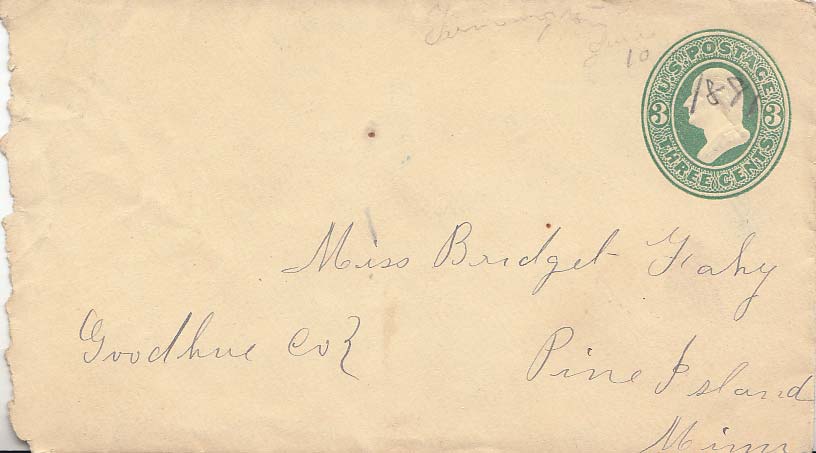 June
10
U.S. POSTAGE
3 3
1871
THREE CENTS
Miss Bridget Fahy
Goodhue Co
Pine Island
Minn